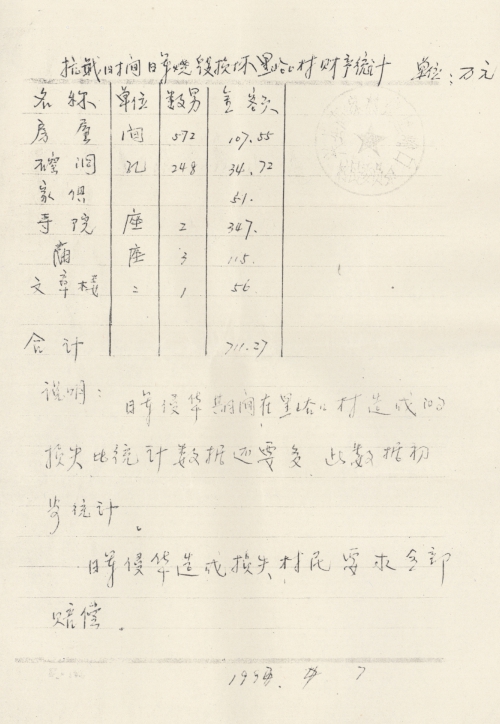 抗战时间日军烧毁损坏黑峪口村财产统计 单位:万元
名称 单位 数另 金额
房屋 间 572 107.55
石窑洞 孔 248 34.72
家俱 51.
寺院 座 2 347.
庙 座 3 115.
文章楼 〃 1 56.
合计 711.27
说明:
日军侵华期间在黑峪口村造成的
损失比统计数据还要多 此数据初
步统计。
日军侵华造成损失村民要求全部
赔偿。